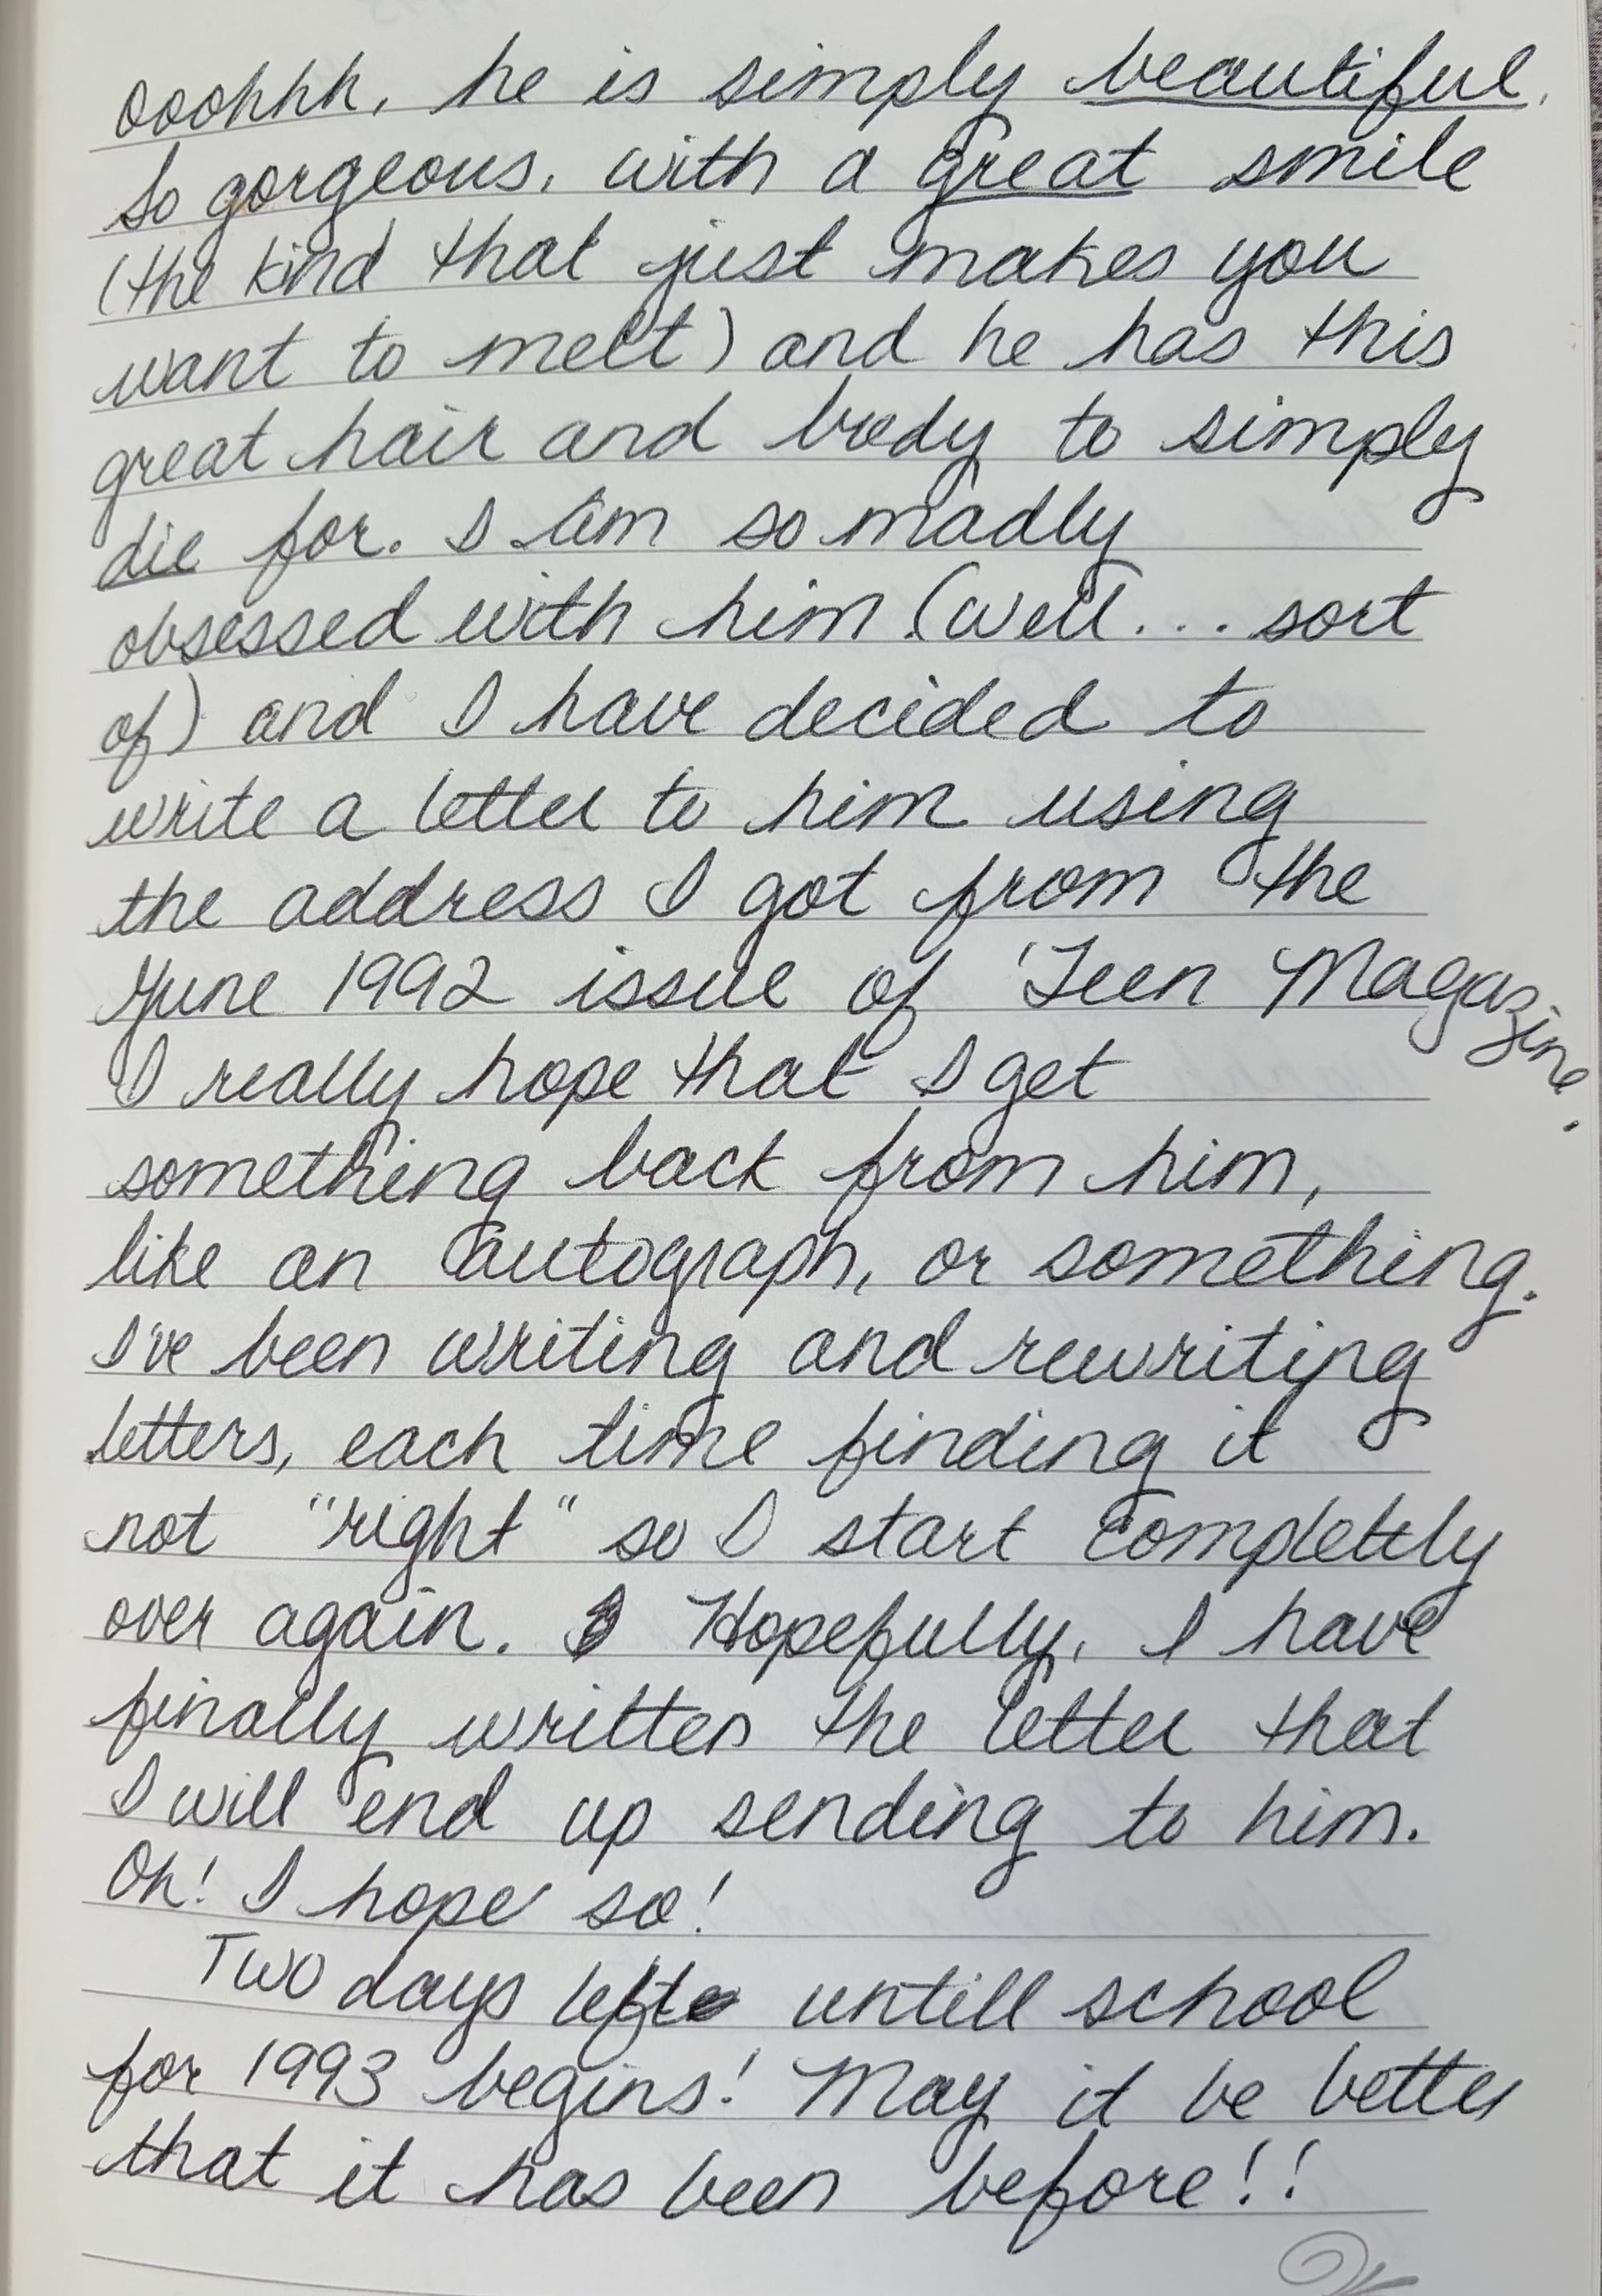 Ooohhh, he is simply beautiful,
so gorgeous, with a great smile
(the kind that just makes you
want to melt) and he has this
great hair and body to simply
die for. I am so madly
obsessed with him (well... sort
of) and I have decided to
write a letter to him using
the address I got from the
June 1992 issue of 'Teen Magazine.
I really hope that I get
something back from him,
like an autograph, or something.
I've been writing and rewriting
letters, each time finding it
not "right" so I start completely
over again. Hopefully, I have
finally written the letter that
I will end up sending to him.
Oh! I hope so!
Two days left untill school
for 1993 begins! May it be better
that it has been before!!